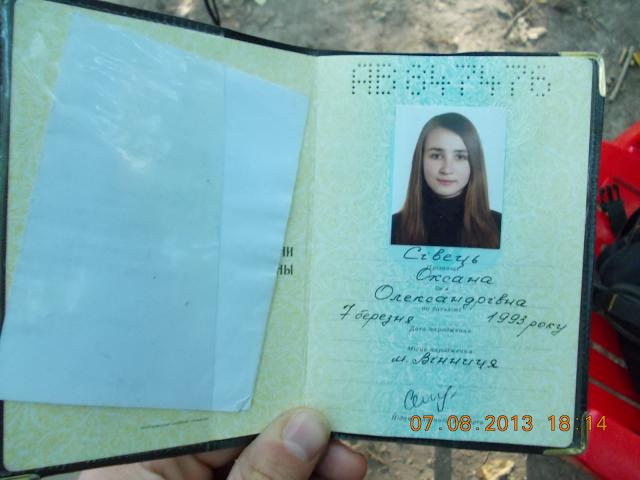 НИ
НЫ
АВ 847476
Сівець
Прізвище
Оксана
Ім'я
Олександрівна
по батькові
7 березня 1993 року
Дата народження
Місце народження
м. Вінниця
07.08.2013 18:14